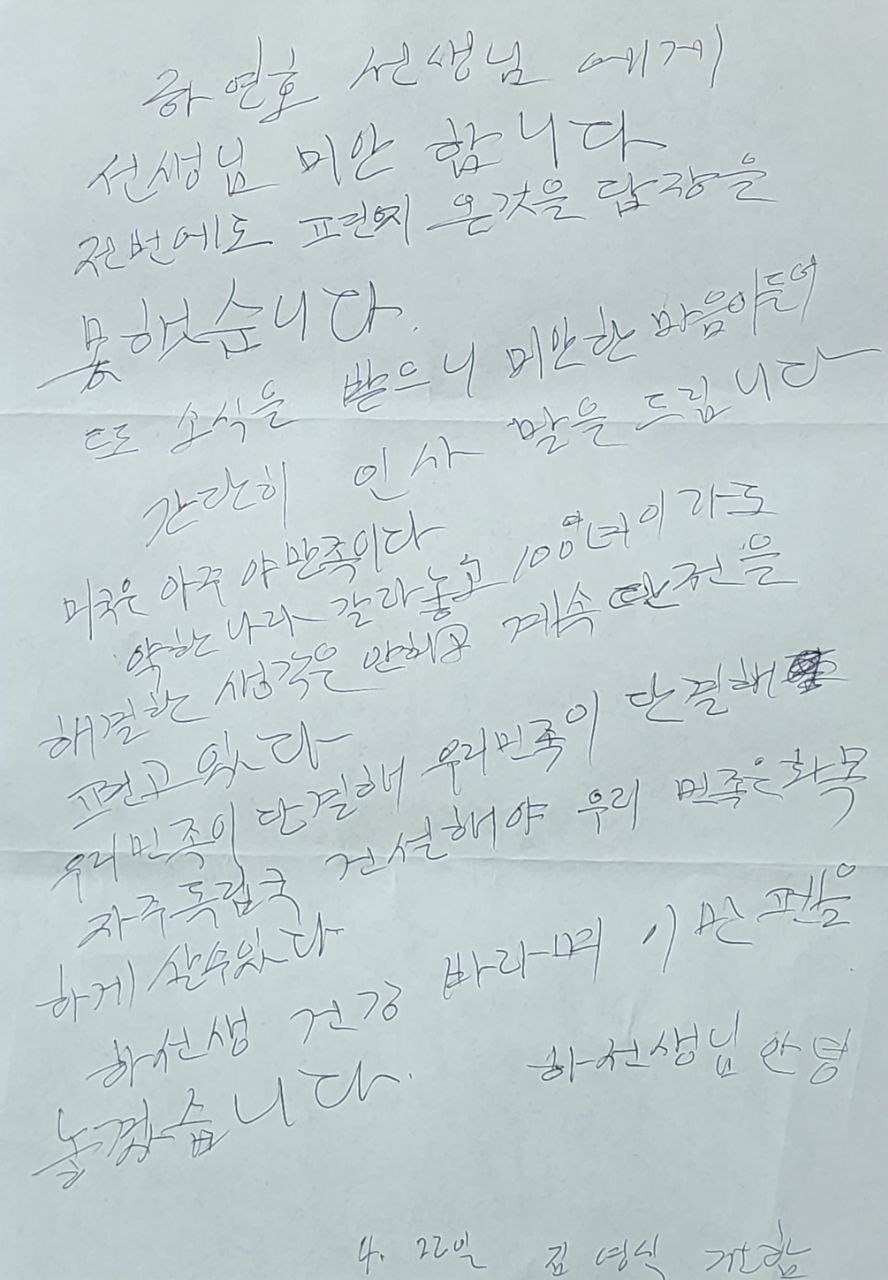 하연호 선생님 에게
선생님 미안 합니다
전번에도 편지 온것을 답장을
못했습니다.
또 소식을 받으니 미안한 마음이들어
간단히 인사 말을 드립니다
미국은 아주 야만족이다
약한나라 갈라놓고 100여년이가도
해결할 생각은 안하고 계속 단전을
펴고 있다
우리민족이 단결해 우리민족이 단결해
자주독립국 건설해야 우리 민족은화목
하게 살수있다
하선생 건강 바라며 이만 펜을
놓겠습니다.
하선생님 안녕
4. 22일 김영식